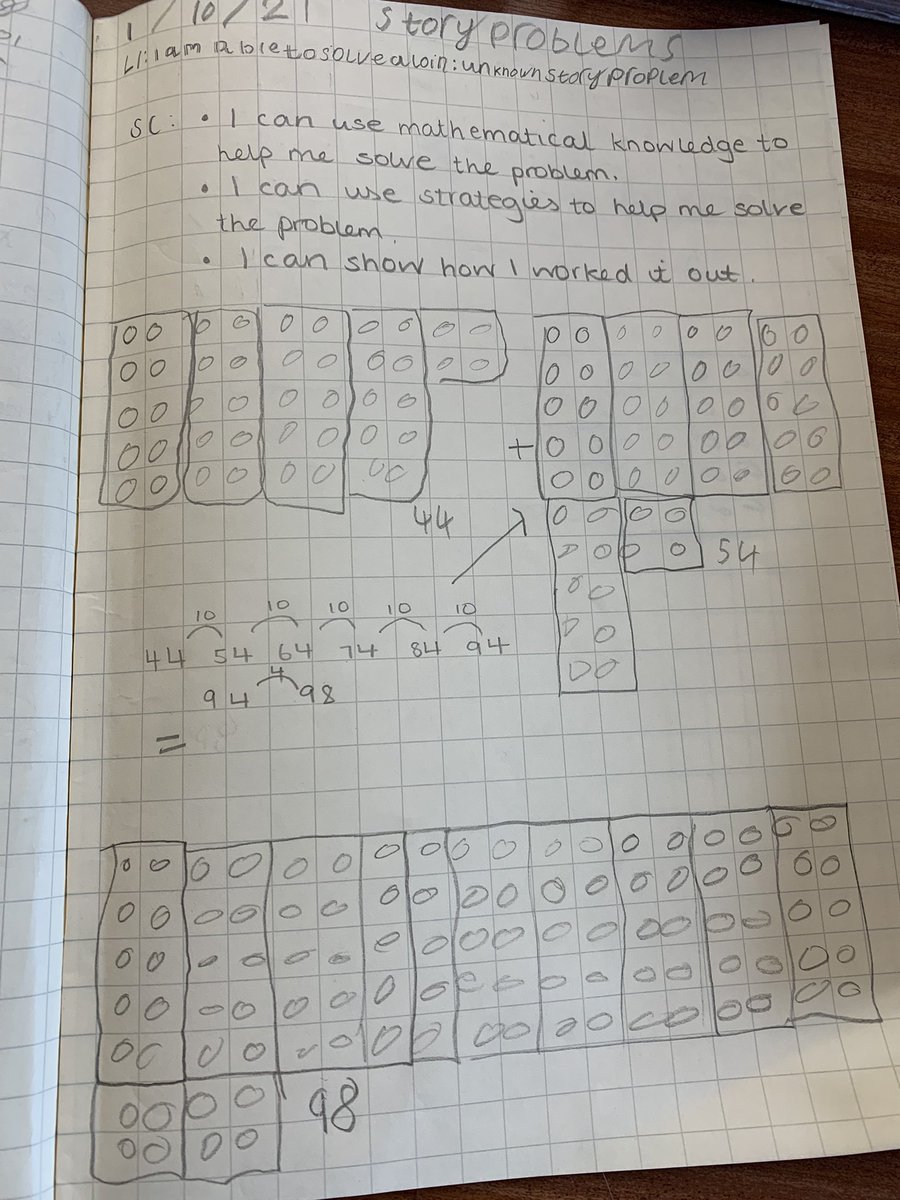 1/10/21 Story problems
LI: I am able to solve a join: unknown story proplem
SC: • I can use mathematical knowledge to
help me solve the problem.
• I can use strategies to help me solve
the problem.
• I can show how I worked it out.
+
44
54
10 10 10 10 10
44 54 64 74 84 94
4
94 98
=
98